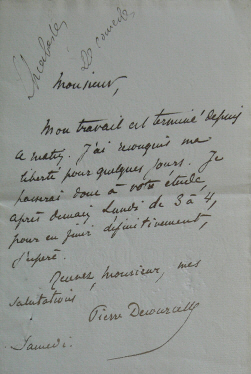 Monsieur,
Mon travail est terminé depuis
ce matin. J'ai reconquis ma
liberté pour quelques jours. Je
passerai donc à votre étude,
après demain Lundi de 3 à 4,
pour en finir définitivement,
j'espère.
Recevez, Monsieur, mes
salutations,
Pierre Decourcelle
Samedi